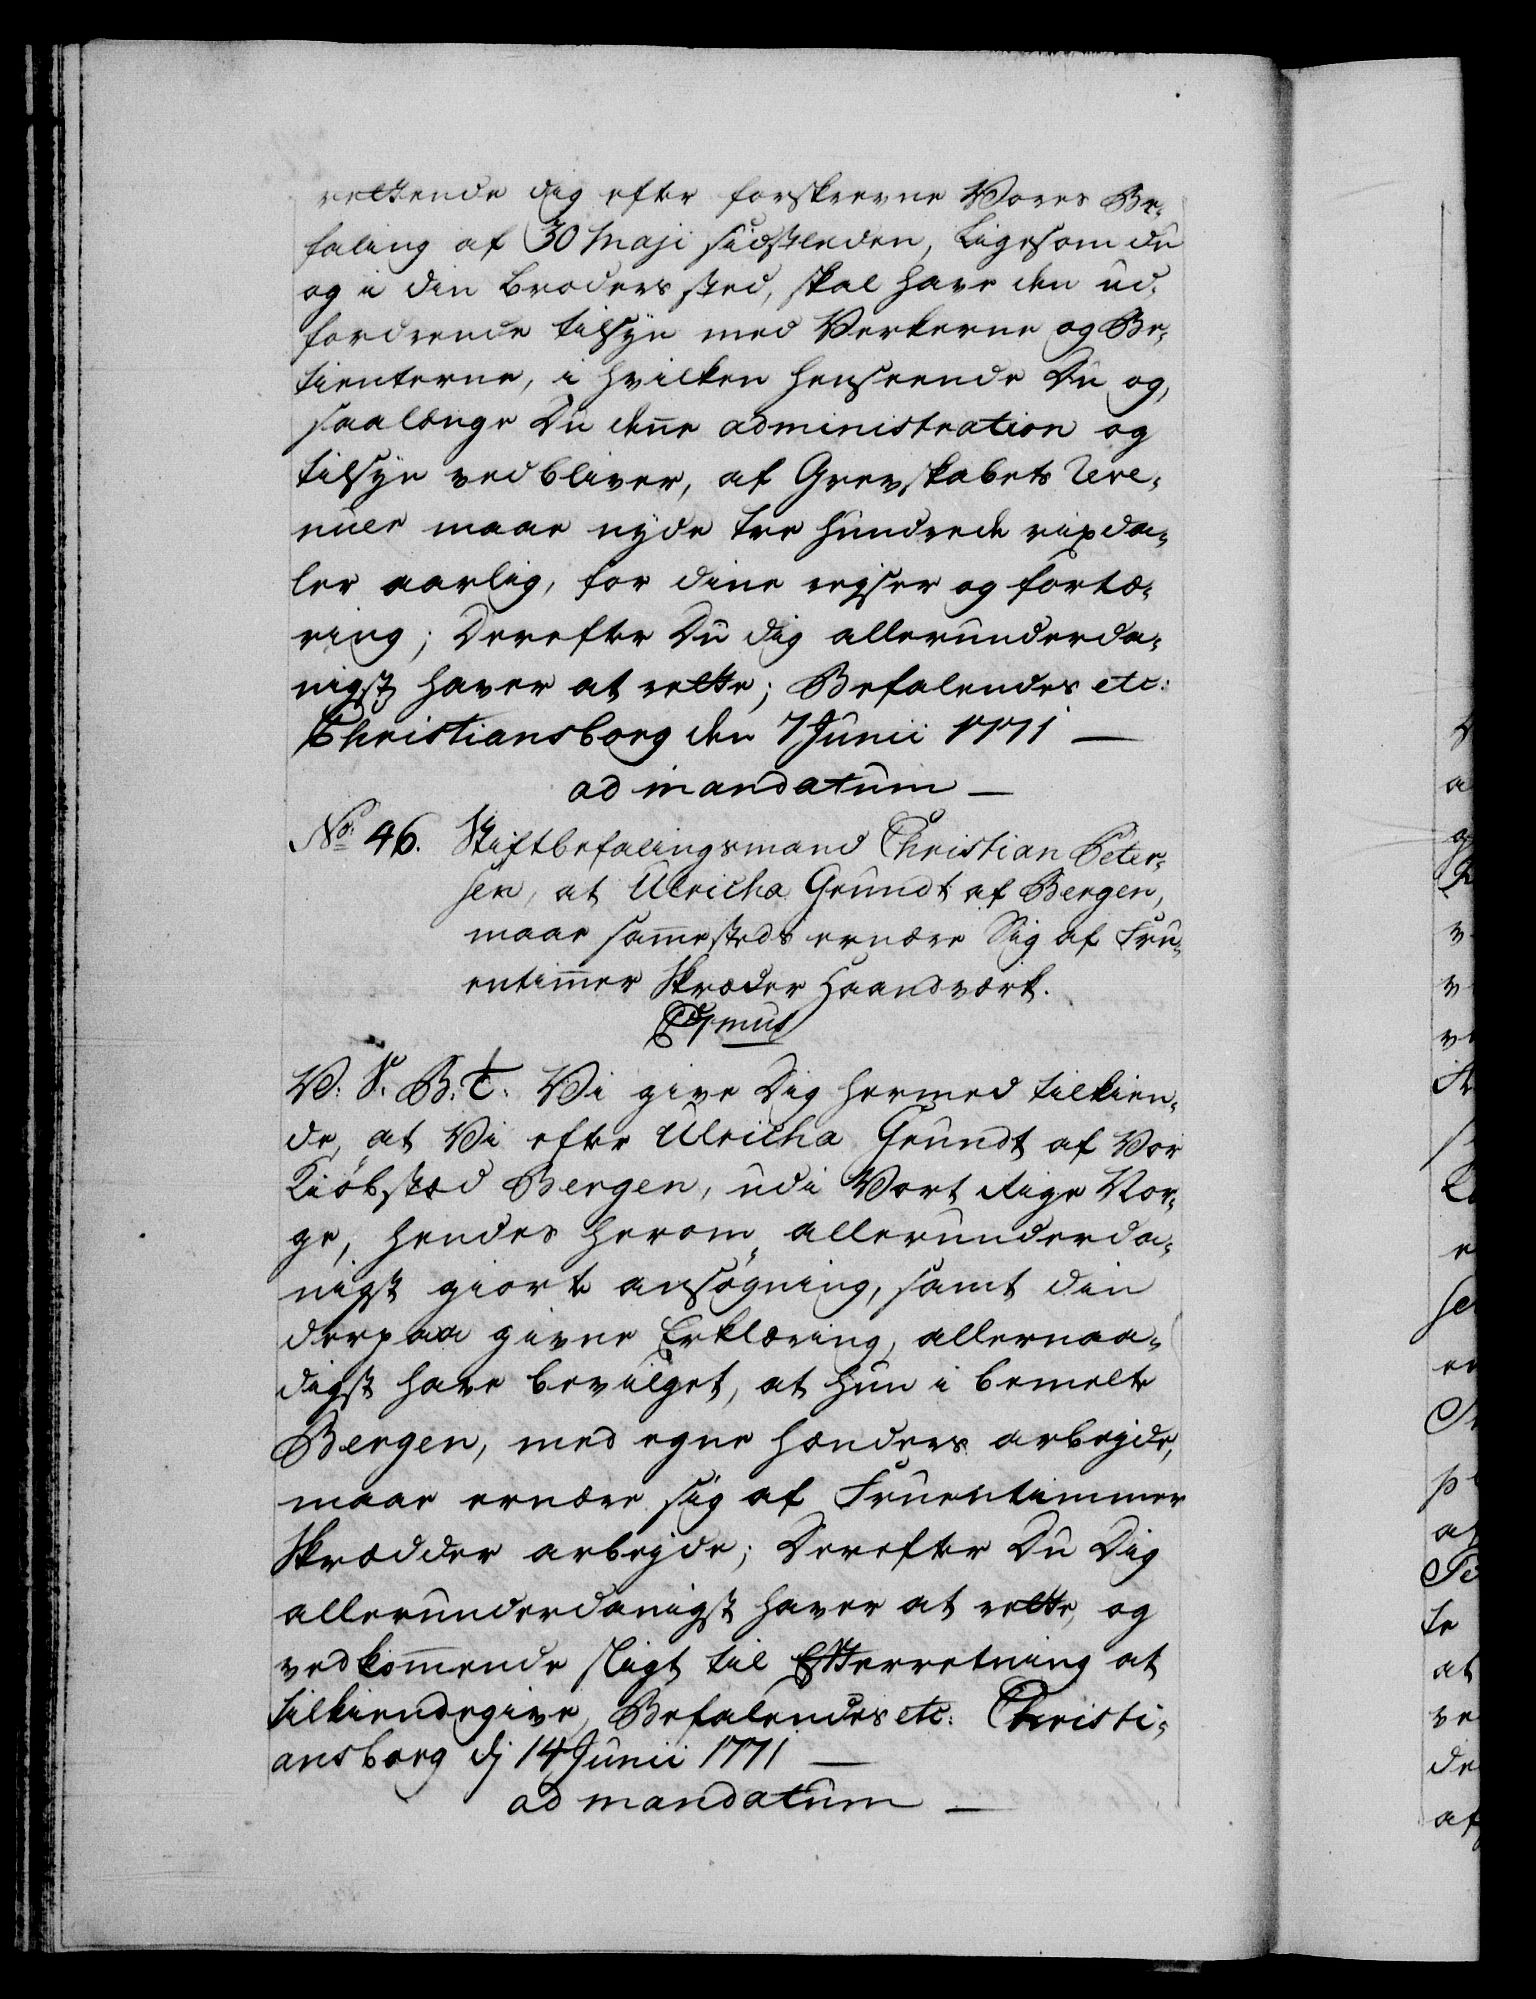 rettende dig efter forskrevne Vores Be-
faling af 30 Maji sidstleden, Ligesom du
og i din Broders sted, skal have den ud-
fordrende tilsyn med Verkerne og Be-
tienterne, i hvilken henseende Du og,
saalænge Du deñe administration og
tilsyn vedbliver, af Grevskabets Reve-
nüer maae nyde tre hundrede rixda-
ler aarlig, for dine rejser og fortæ-
ring; Derefter Du dig allerunderda-
nigst haver at rette; Befalendes etc:
Christiansborg den 7 Junii 1771 —
ad mandatum —
No. 46. Stiftbefalingsmand Christian Peter-
sen, at Ulricha Grundt af Bergen,
maae sam̃esteds ernære Sig af Fru-
entim̃er Skræder Haandværk.
C 7mus
V: S. B. T: Vi give Dig hermed tilkien-
de, at Vi efter Ulricha Grundt af Vor
Kiöbstæd Bergen, udi Vort Rige Nor-
ge, hendes herom allerunderda-
nigst giorte ansøgning, samt din
derpaa givne Erklæring, allernaa-
digst have bevilget, at hun i bemelte
Bergen, med egne hænders arbejde,
maae ernære sig af Fruentimmer
Skrædder arbejde; Derefter Du Dig
allerunderdanigst haver at rette, og
vedkom̃ende sligt til Efterretning at
tilkiendegive, Befalendes etc: Christi-
ansborg dj 14 Junii 1771 —
ad mandatum —